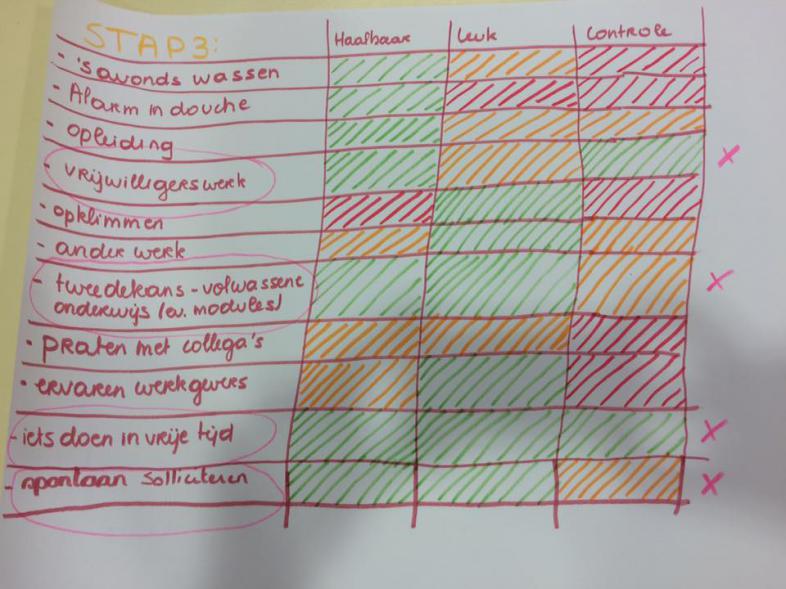 STAP 3:
Haalbaar Leuk Controle
- 's avonds wassen
- Alarm in douche
- opleiding
- vrijwilligerswerk
- opklimmen
- ander werk
- tweedekans-volwassene
onderwijs (ev. modules)
• praten met collega's
• ervaren werkgevers
- iets doen in vrije tijd
- spontaan solliciteren
X
X
X
X